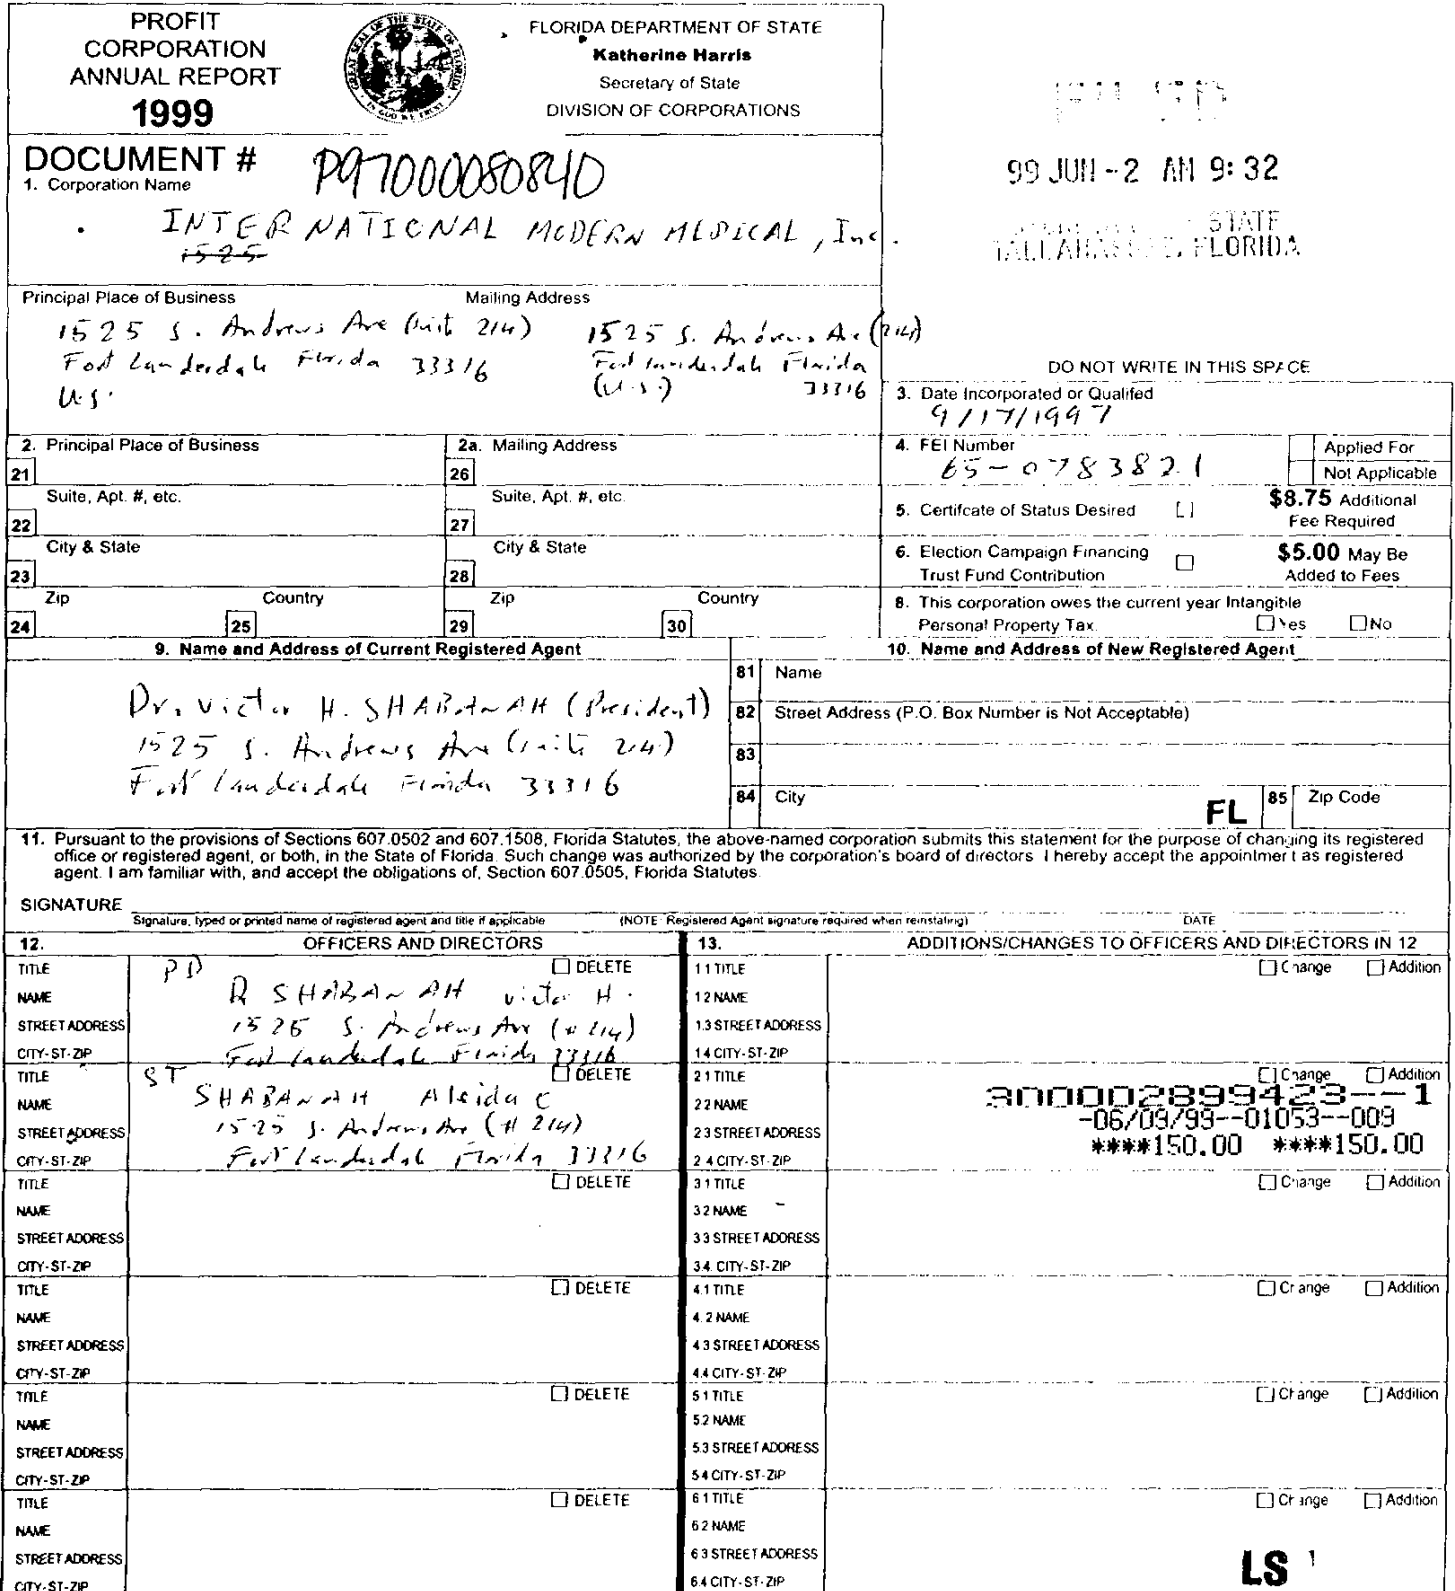 PROFIT
CORPORATION
ANNUAL REPORT
1999
FLORIDA DEPARTMENT OF STATE
Katherine Harris
Secretary of State
DIVISION OF CORPORATIONS
99 JUN -2 AM 9:32
STATE
FLORIDA
DOCUMENT # P97000080840
1. Corporation Name
INTERNATIONAL MODERN MEDICAL, Inc.
1525
Principal Place of Business Mailing Address
1525 S. Andrews Ave (Suite 214) 1525 S. Andrews Ave (214)
Fort Lauderdale Florida 33316 Fort Lauderdale Florida
U.S. (U.S.) 33316
DO NOT WRITE IN THIS SPACE
3. Date Incorporated or Qualifed
9/17/1997
2. Principal Place of Business 2a. Mailing Address
21 26
Suite, Apt. #, etc. Suite, Apt. #, etc.
22 27
City & State City & State
23 28
Zip Country Zip Country
24 25 29 30
4. FEI Number Applied For
65-0783821 Not Applicable
5. Certifcate of Status Desired $8.75 Additional
Fee Required
6. Election Campaign Financing $5.00 May Be
Trust Fund Contribution Added to Fees
8. This corporation owes the current year Intangible
Personal Property Tax. Yes No
9. Name and Address of Current Registered Agent
Dr. Victor H. SHABANAH (President)
1525 S. Andrews Ave (Suite 214)
Fort Lauderdale Florida 33316
10. Name and Address of New Registered Agent
81 Name
82 Street Address (P.O. Box Number is Not Acceptable)
83
84 City FL 85 Zip Code
11. Pursuant to the provisions of Sections 607.0502 and 607.1508, Florida Statutes, the above-named corporation submits this statement for the purpose of changing its registered
office or registered agent, or both, in the State of Florida. Such change was authorized by the corporation's board of directors. I hereby accept the appointment as registered
agent. I am familiar with, and accept the obligations of, Section 607.0505, Florida Statutes.
SIGNATURE
Signature, typed or printed name of registered agent and title if applicable (NOTE: Registered Agent signature required when reinstating) DATE
12. OFFICERS AND DIRECTORS
TITLE PD DELETE
NAME SHABANAH Victor H.
STREET ADDRESS 1525 S. Andrews Ave (# 214)
CITY-ST-ZIP Fort Lauderdale Florida 33316
TITLE ST DELETE
NAME SHABANAH Aleida C
STREET ADDRESS 1525 S. Andrews Ave (# 214)
CITY-ST-ZIP Fort Lauderdale Florida 33316
TITLE DELETE
NAME
STREET ADDRESS
CITY-ST-ZIP
TITLE DELETE
NAME
STREET ADDRESS
CITY-ST-ZIP
TITLE DELETE
NAME
STREET ADDRESS
CITY-ST-ZIP
TITLE DELETE
NAME
STREET ADDRESS
CITY-ST-ZIP
13. ADDITIONS/CHANGES TO OFFICERS AND DIRECTORS IN 12
1.1 TITLE Change Addition
1.2 NAME
1.3 STREET ADDRESS
1.4 CITY-ST-ZIP
2.1 TITLE Change Addition
2.2 NAME 300002899423--1
2.3 STREET ADDRESS -06/09/99--01053--009
2.4 CITY-ST-ZIP ****150.00 ****150.00
3.1 TITLE Change Addition
3.2 NAME
3.3 STREET ADDRESS
3.4. CITY-ST-ZIP
4.1 TITLE Change Addition
4.2 NAME
4.3 STREET ADDRESS
4.4 CITY-ST-ZIP
5.1 TITLE Change Addition
5.2 NAME
5.3 STREET ADDRESS
5.4 CITY-ST-ZIP
6.1 TITLE Change Addition
6.2 NAME
6.3 STREET ADDRESS
6.4 CITY-ST-ZIP
LS